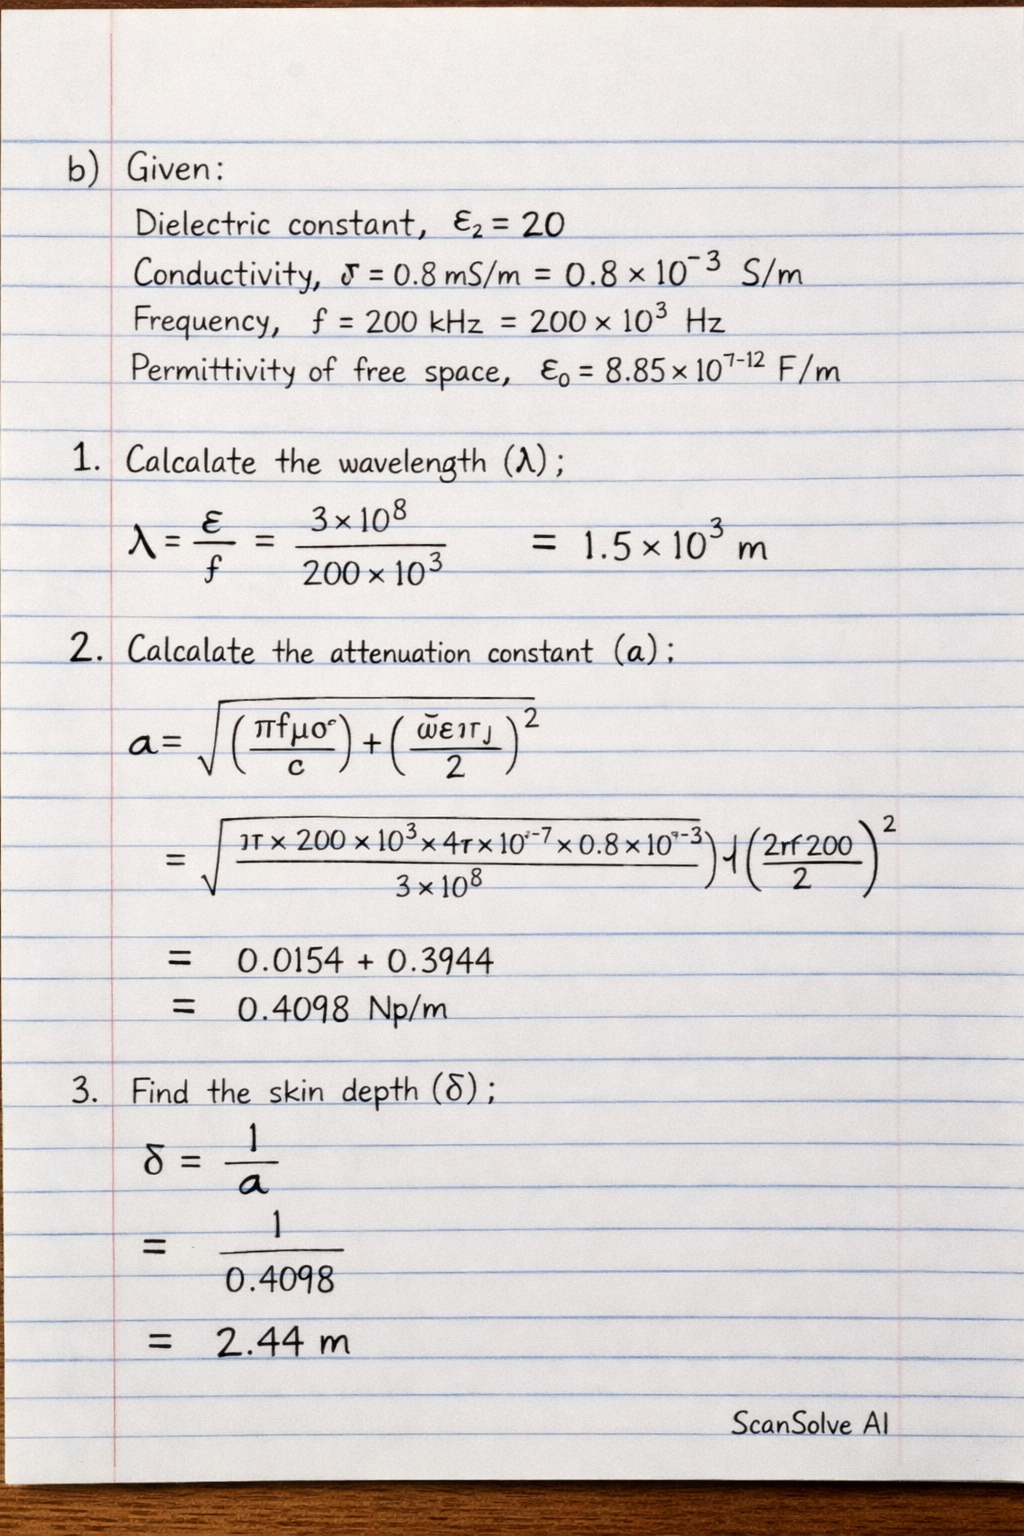 b) Given:
Dielectric constant, ε₂ = 20
Conductivity, σ = 0.8 mS/m = 0.8 × 10⁻³ S/m
Frequency, f = 200 kHz = 200 × 10³ Hz
Permittivity of free space, ε₀ = 8.85 × 10⁷⁻¹² F/m
1. Calcalate the wavelength (λ);
λ = ε/f = (3 × 10⁸)/(200 × 10³) = 1.5 × 10³ m
2. Calcalate the attenuation constant (a);
a = √(πfμσ/c) + ( /2)²
= √(π × 200 × 10³ × 4π × 10⁻⁷ × 0.8 × 10⁻³)/(3 × 10⁸) (2rf200/2)²
= 0.0154 + 0.3944
= 0.4098 Np/m
3. Find the skin depth (δ);
δ = 1/a
= 1/0.4098
= 2.44 m
ScanSolve AI